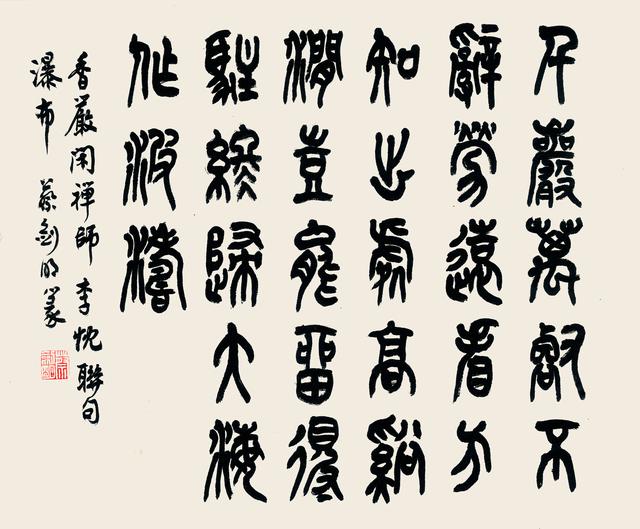 千巖萬壑不
辭勞遠看方
知出處高谿
澗豈能留得
駐終歸大海
作波濤
香嚴閑禪師 李忱聯句
瀑布 蔡劍明篆